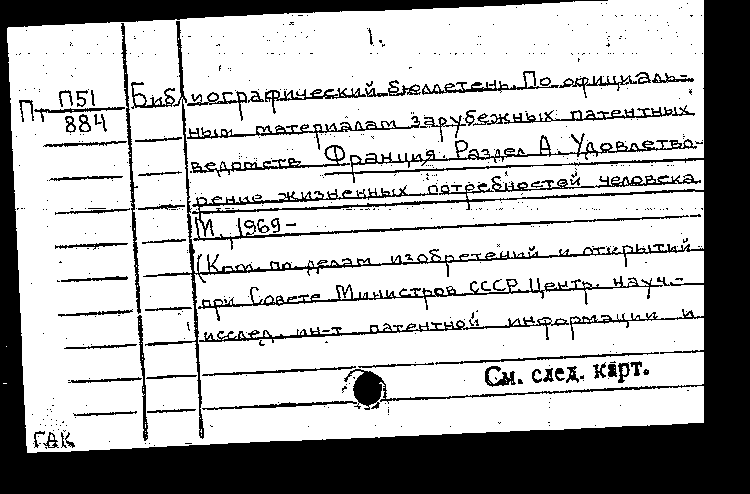 1.
Пт П51/884
Библиографический бюллетень. По официаль-
ным материалам зарубежных патентных
ведомств Франция. Раздел А. Удовлетво-
рение жизненных потребностей человека
М., 1969-
(Ком. по делам изобретений и открытий
при Совете Министров СССР. Центр. науч.-
исслед. ин-т патентной информации и
См. след. карт.
ГАК